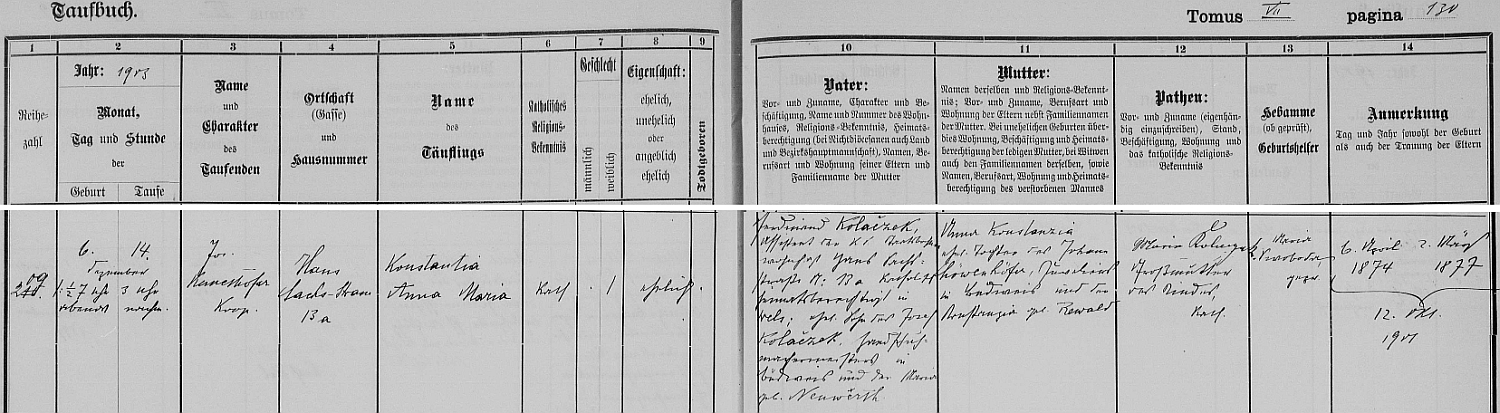 Taufbuch.
Tomus VII pagina 130
1 2 3 4 5 6 7 8 9 10 11 12 13 14
Reihe-
zahl
Jahr: 1903
Monat,
Tag und Stunde
der
Geburt Taufe
Name
und
Charakter
des
Taufenden
Ortschaft
(Gasse)
und
Hausnummer
Name
des
Täuflings
Katholisches
Religions-
Bekenntnis
Geschlecht
männlich
weiblich
Eigenschaft:
ehelich,
unehelich
oder
angeblich
ehelich
Todtgeboren
Vater:
Vor- und Zuname, Charakter und Be-
schäftigung, Name und Nummer des Wohn-
hauses, Religions-Bekenntnis, Heimats-
berechtigung (bei Nichtdiöcesanen auch Land
und Bezirkshauptmannschaft), Namen, Be-
rufsart und Wohnung seiner Eltern und
Familienname der Mutter
Mutter:
Namen derselben und Religions-Bekennt-
nis; Vor- und Zuname, Berufsart und
Wohnung der Eltern nebst Familiennamen
der Mutter. Bei unehelichen Geburten über-
dies Wohnung, Beschäftigung und Heimats-
berechtigung der ledigen Mutter, bei Witwen
auch den Familiennamen derselben, sowie
Namen, Berufsart, Wohnung und Heimats-
berechtigung des verstorbenen Mannes
Pathen:
Vor- und Zuname (eigenhän-
dig einzuschreiben), Stand,
Beschäftigung, Wohnung und
das katholische Religions-
Bekenntnis
Hebamme
(ob geprüft),
Geburtshelfer
Anmerkung
Tag und Jahr sowohl der Geburt
als auch der Trauung der Eltern
6. 14.
Dezember
1/2 7 Uhr 3 Uhr
abends nachm.
Jos.
Koop.
Hans
Sachs-Strasse
13a
Konstantia
Anna Maria
Kath
1
ehelich
Ferdinand Kolaczek,
Assistent der
wohnhaft Hans Sachs-
straße N: 13a Katholisch
heimatberechtigt in
Wels; ehel. Sohn des Josef
Kolaczek, Handschuh-
machermeisters in
Budweis und der Maria
geb. Neuwerth
Anna Konstanzia
ehel. Tochter des Johann
Löwenhöfer,
in Budweis und der
Konstanzia geb. Rewald
Maria
Großmutter
des Kindes,
Kath.
Maria
Swoboda
gepr.
6. April 2. März
1874 1877
12. Okt.
1901